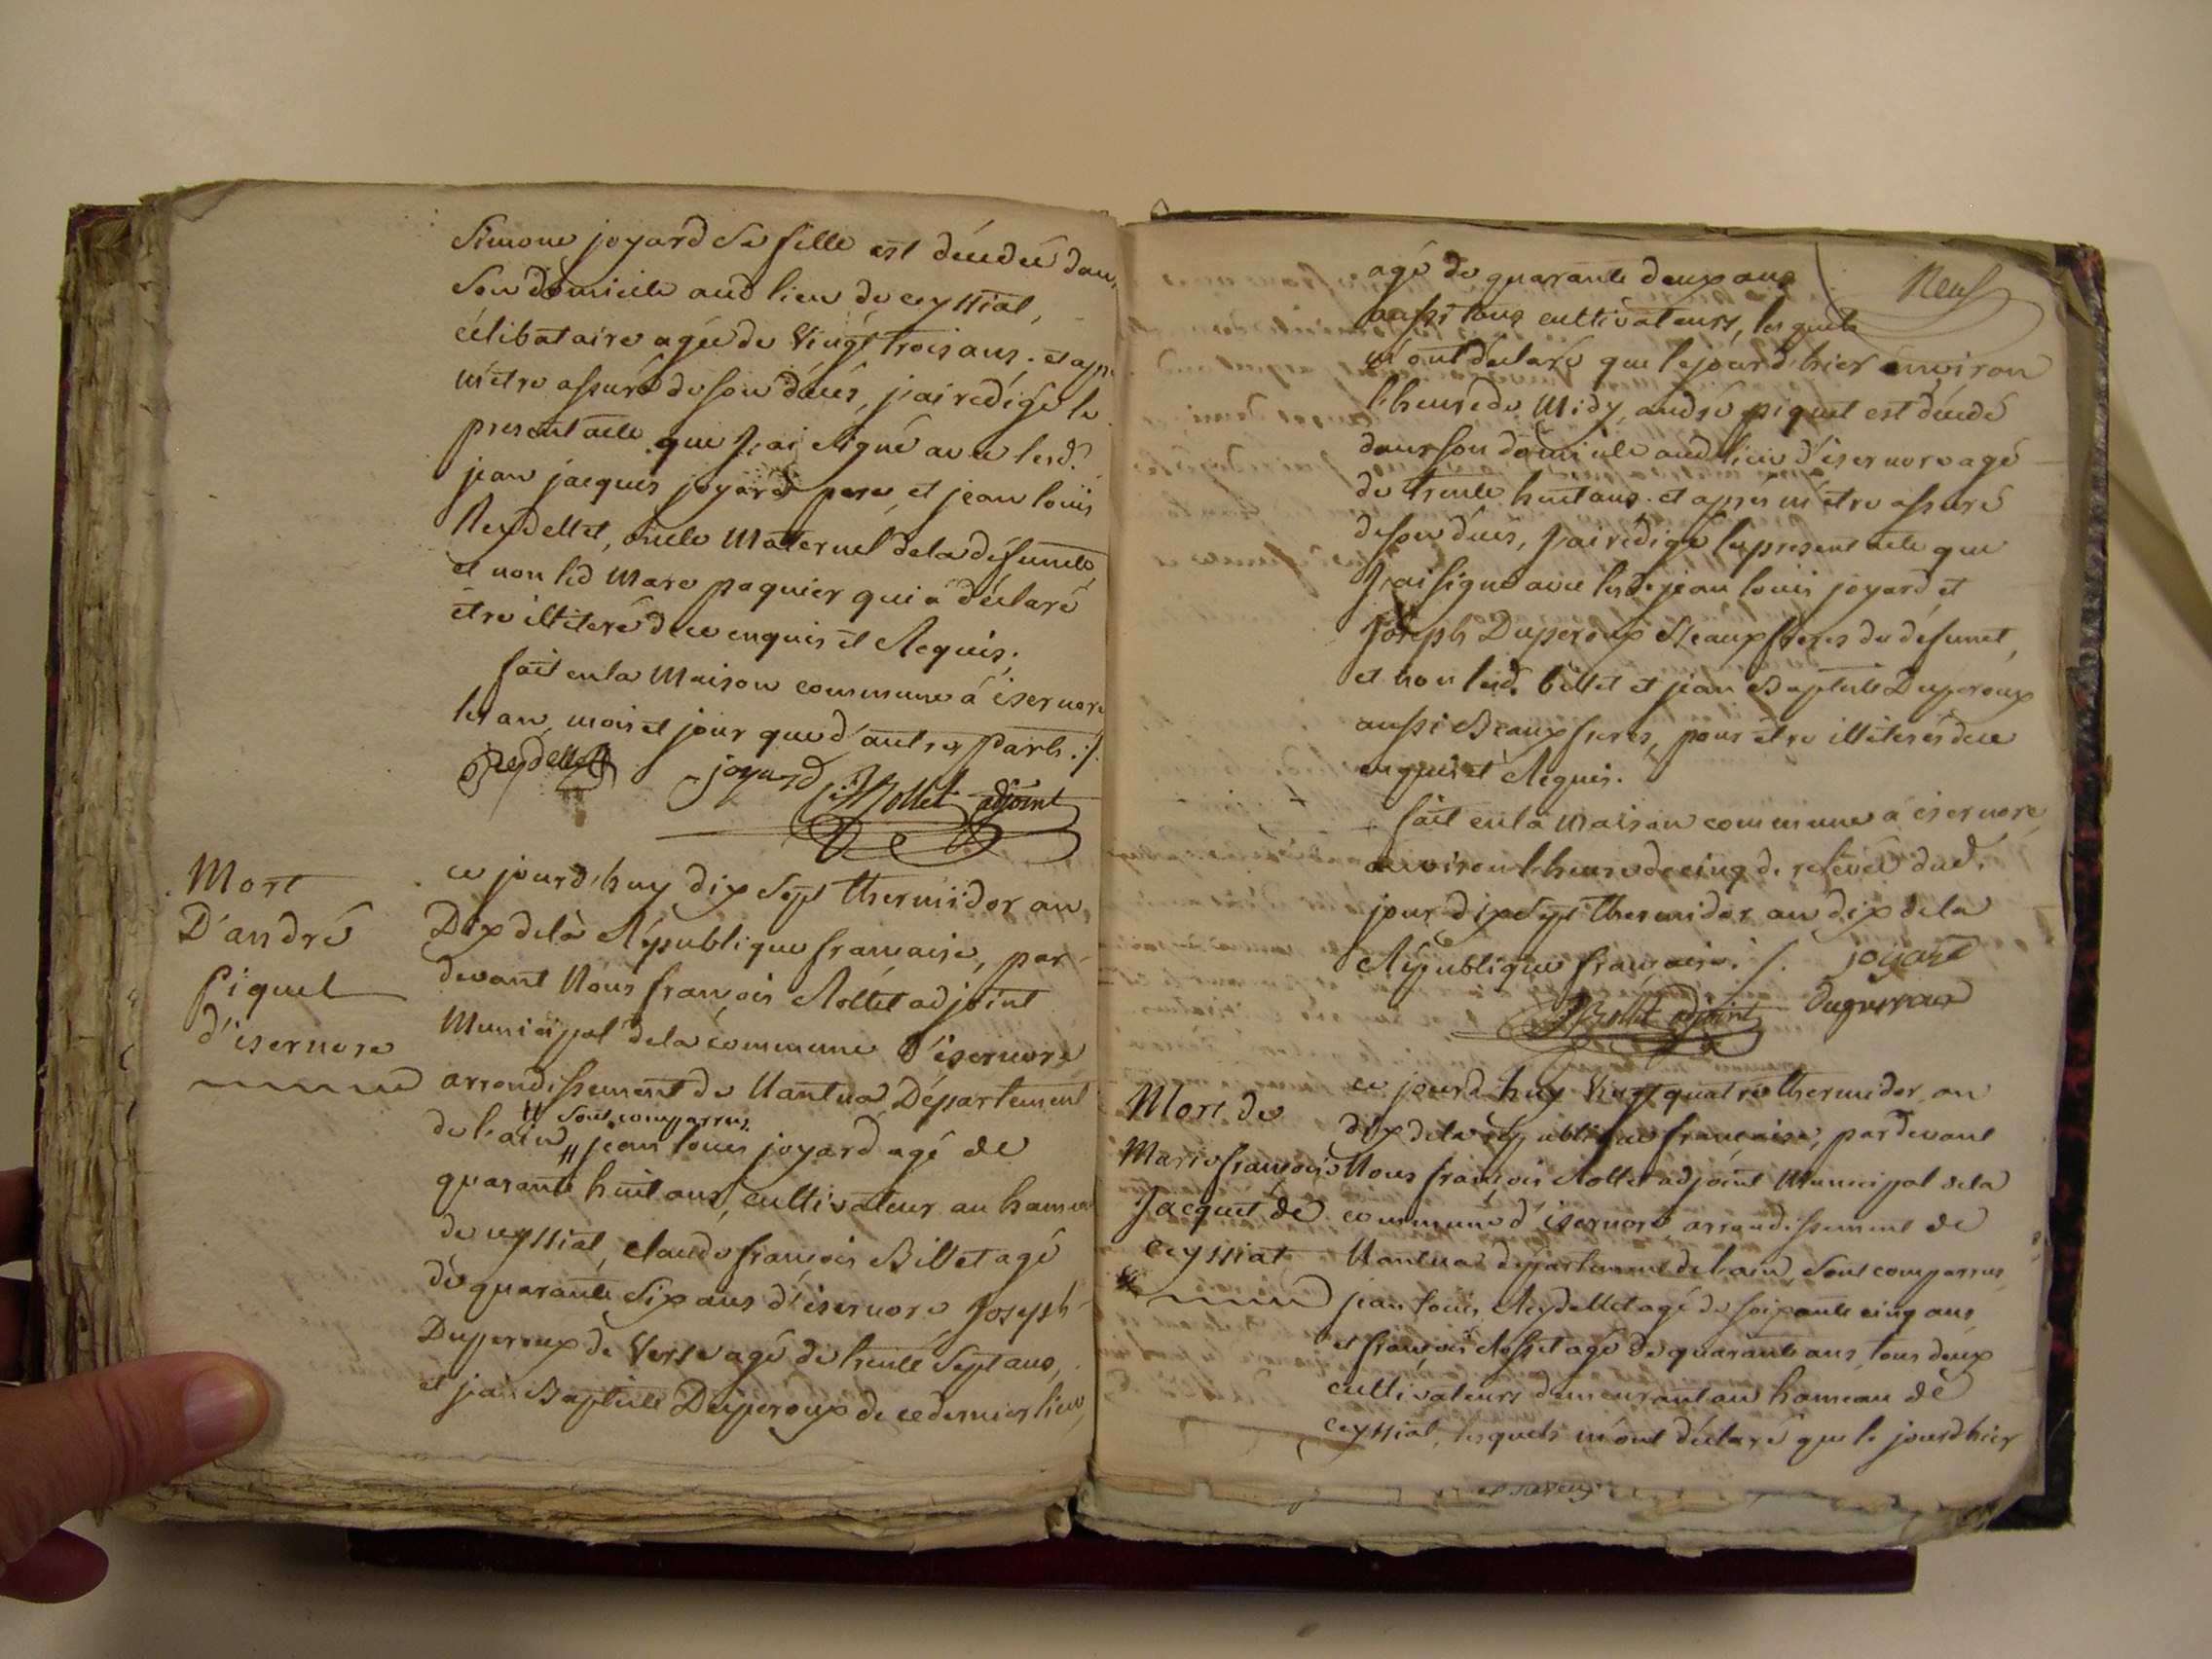 Simone joyard Sa fille est décédée dans
Son domicile aud lieu de ceyssiat,
célibataire agée de Vingt trois ans. et apr
m'etre assuré de son décés, j'ai redigé le
present acte que J'ai Signé avec lesd.
jean jacques joyard pere, et jean louis
Reydellet, oncle Maternel de la défunte,
et non led Marc paquier qui a déclaré
etre illiteré de ce enquis et Requis,
fait en la Maison commune á isernore
les an, mois et jour que d'autres parts ./.
Reydellet joyard
Rollet adjoint
Mort
D'andré
Piquet
d'isernore
ce jourd'huy dix Sept thermidor an
Dix de la République française, par-
devant Nous françois Rollet adjoint
Municipal de la commune d'isernore
arrondissement de Nantua Département
de l'ain, # jean louis joyard agé de
# Sont comparrus
quarante huit ans, cultivateur au hameau
de ceyssiat, claude françois Billet agé
de quarante Six ans d'isernore Joseph
Duperroux de Verse agé de trente Sept ans,
et jean Baptiste Duperoux de ce dernier lieu,
Neuf
agé de quarante deux ans
aussi tous cultivateurs, lesquels
m'ont déclaré que le jourd'hier environ
l'heure de Midy, andré piquet est décédé
dans son domicile aud lieu d'isernore agé
de trente huit ans. et apres m'etre assuré
de son décés, J'ai rédigé le present acte que
J'ai signé avec lesd. jean louis joyard et
Joseph Duperoux Beaux freres du défunct,
et non lesd. billet et jean Baptiste Duperoux
aussi Beaux freres, pour etre illiterés de ce
enquis et Requis.
fait en la Maison commune á isernore
environ l'heure de cinq de relevée dud.
jour dix Sept thermidor an dix de la
République française ./. joyard
Rollet adjoint duperroux
Mort de
Marie françoise
Jacquet de
ceyssiat
ce jourd'huy Vingt quatre thermidor an
dix de la république française, pardevant
Nous françois Rollet adjoint Municipal de la
commune d'isernore, arrondissement de
Nantua département de l'ain, Sont comparrus
jean louis Reydellet agé de soixante cinq ans,
et françois agé de quarante ans, tous deux
cultivateurs demeurant au hameau de
ceyssiat, lesquels m'ont déclaré que le jourd'hier